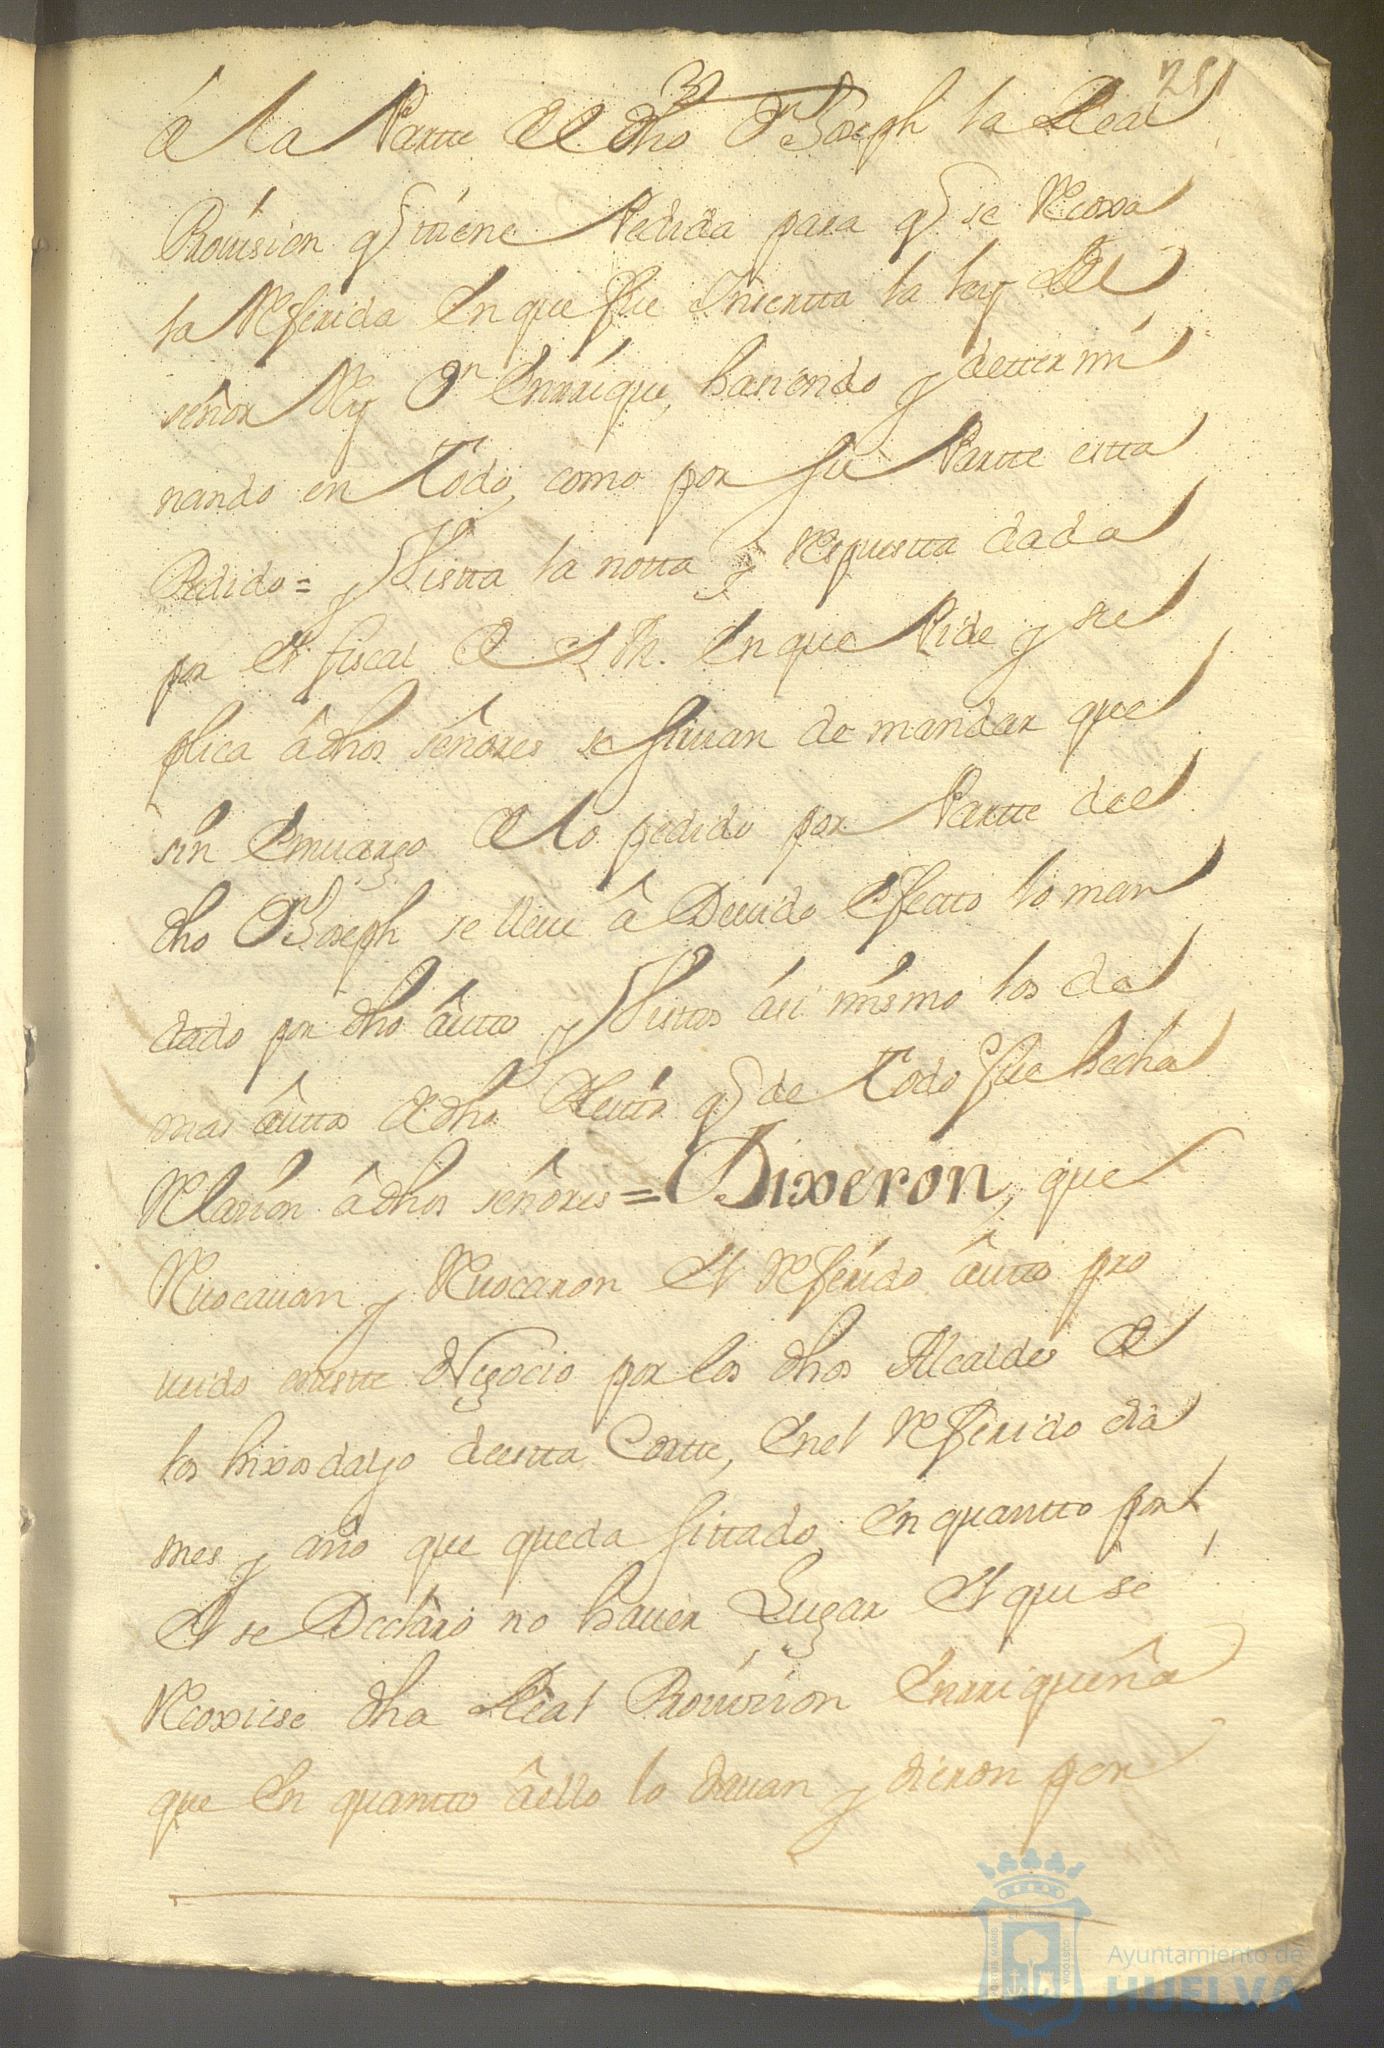 251
32
â la Partte de dho Dn Joseph la Real
Provision q̃ tiene Pedida para q̃ se Recoxa
la Referida en que fue Inserta la ley del
señor Rey Dn Enrrique, hasiendo y dettermi
nando en Todo, como por su Partte esta
Pedido = y Vistta la notta y Respuestta dada
por el fiscal de S M. en que Pide y su
plica â dhos señores se sirvan de mandar que
sin Emvargo de lo pedido por Partte del
dho Dn Joseph se lleve â Devido Efectto lo man
dado por dho âutto y Vistos asi mismo los de
mas âuttos de dho Pleyto q̃ de Todo fue hecha
Relasion â dhos señores = Dixeron, que
Revocavan y Revocaron el Referido âutto pro
veido en estte Negocio por los dhos Alcaldes de
los hixosdalgo de estta Cortte, en el Referido dia
mes y año que queda sittado en quantto por
el se Declaró no haver Lugar el que se
Recoxiese dha Real Provision Enrriqueña
que en quantto â ello lo davan y dieron por
Ayuntamiento de
HUELVA